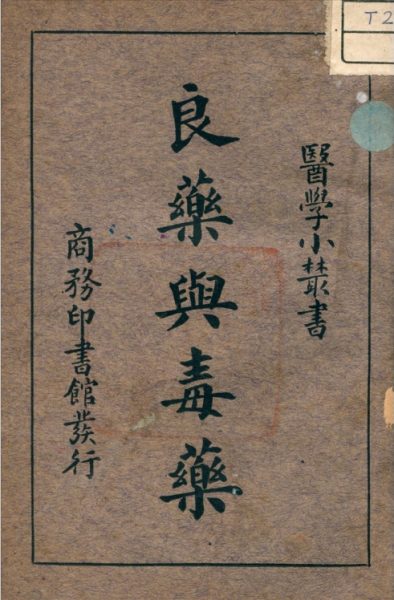 醫學小叢書
良藥與毒藥
商務印書館發行
T2